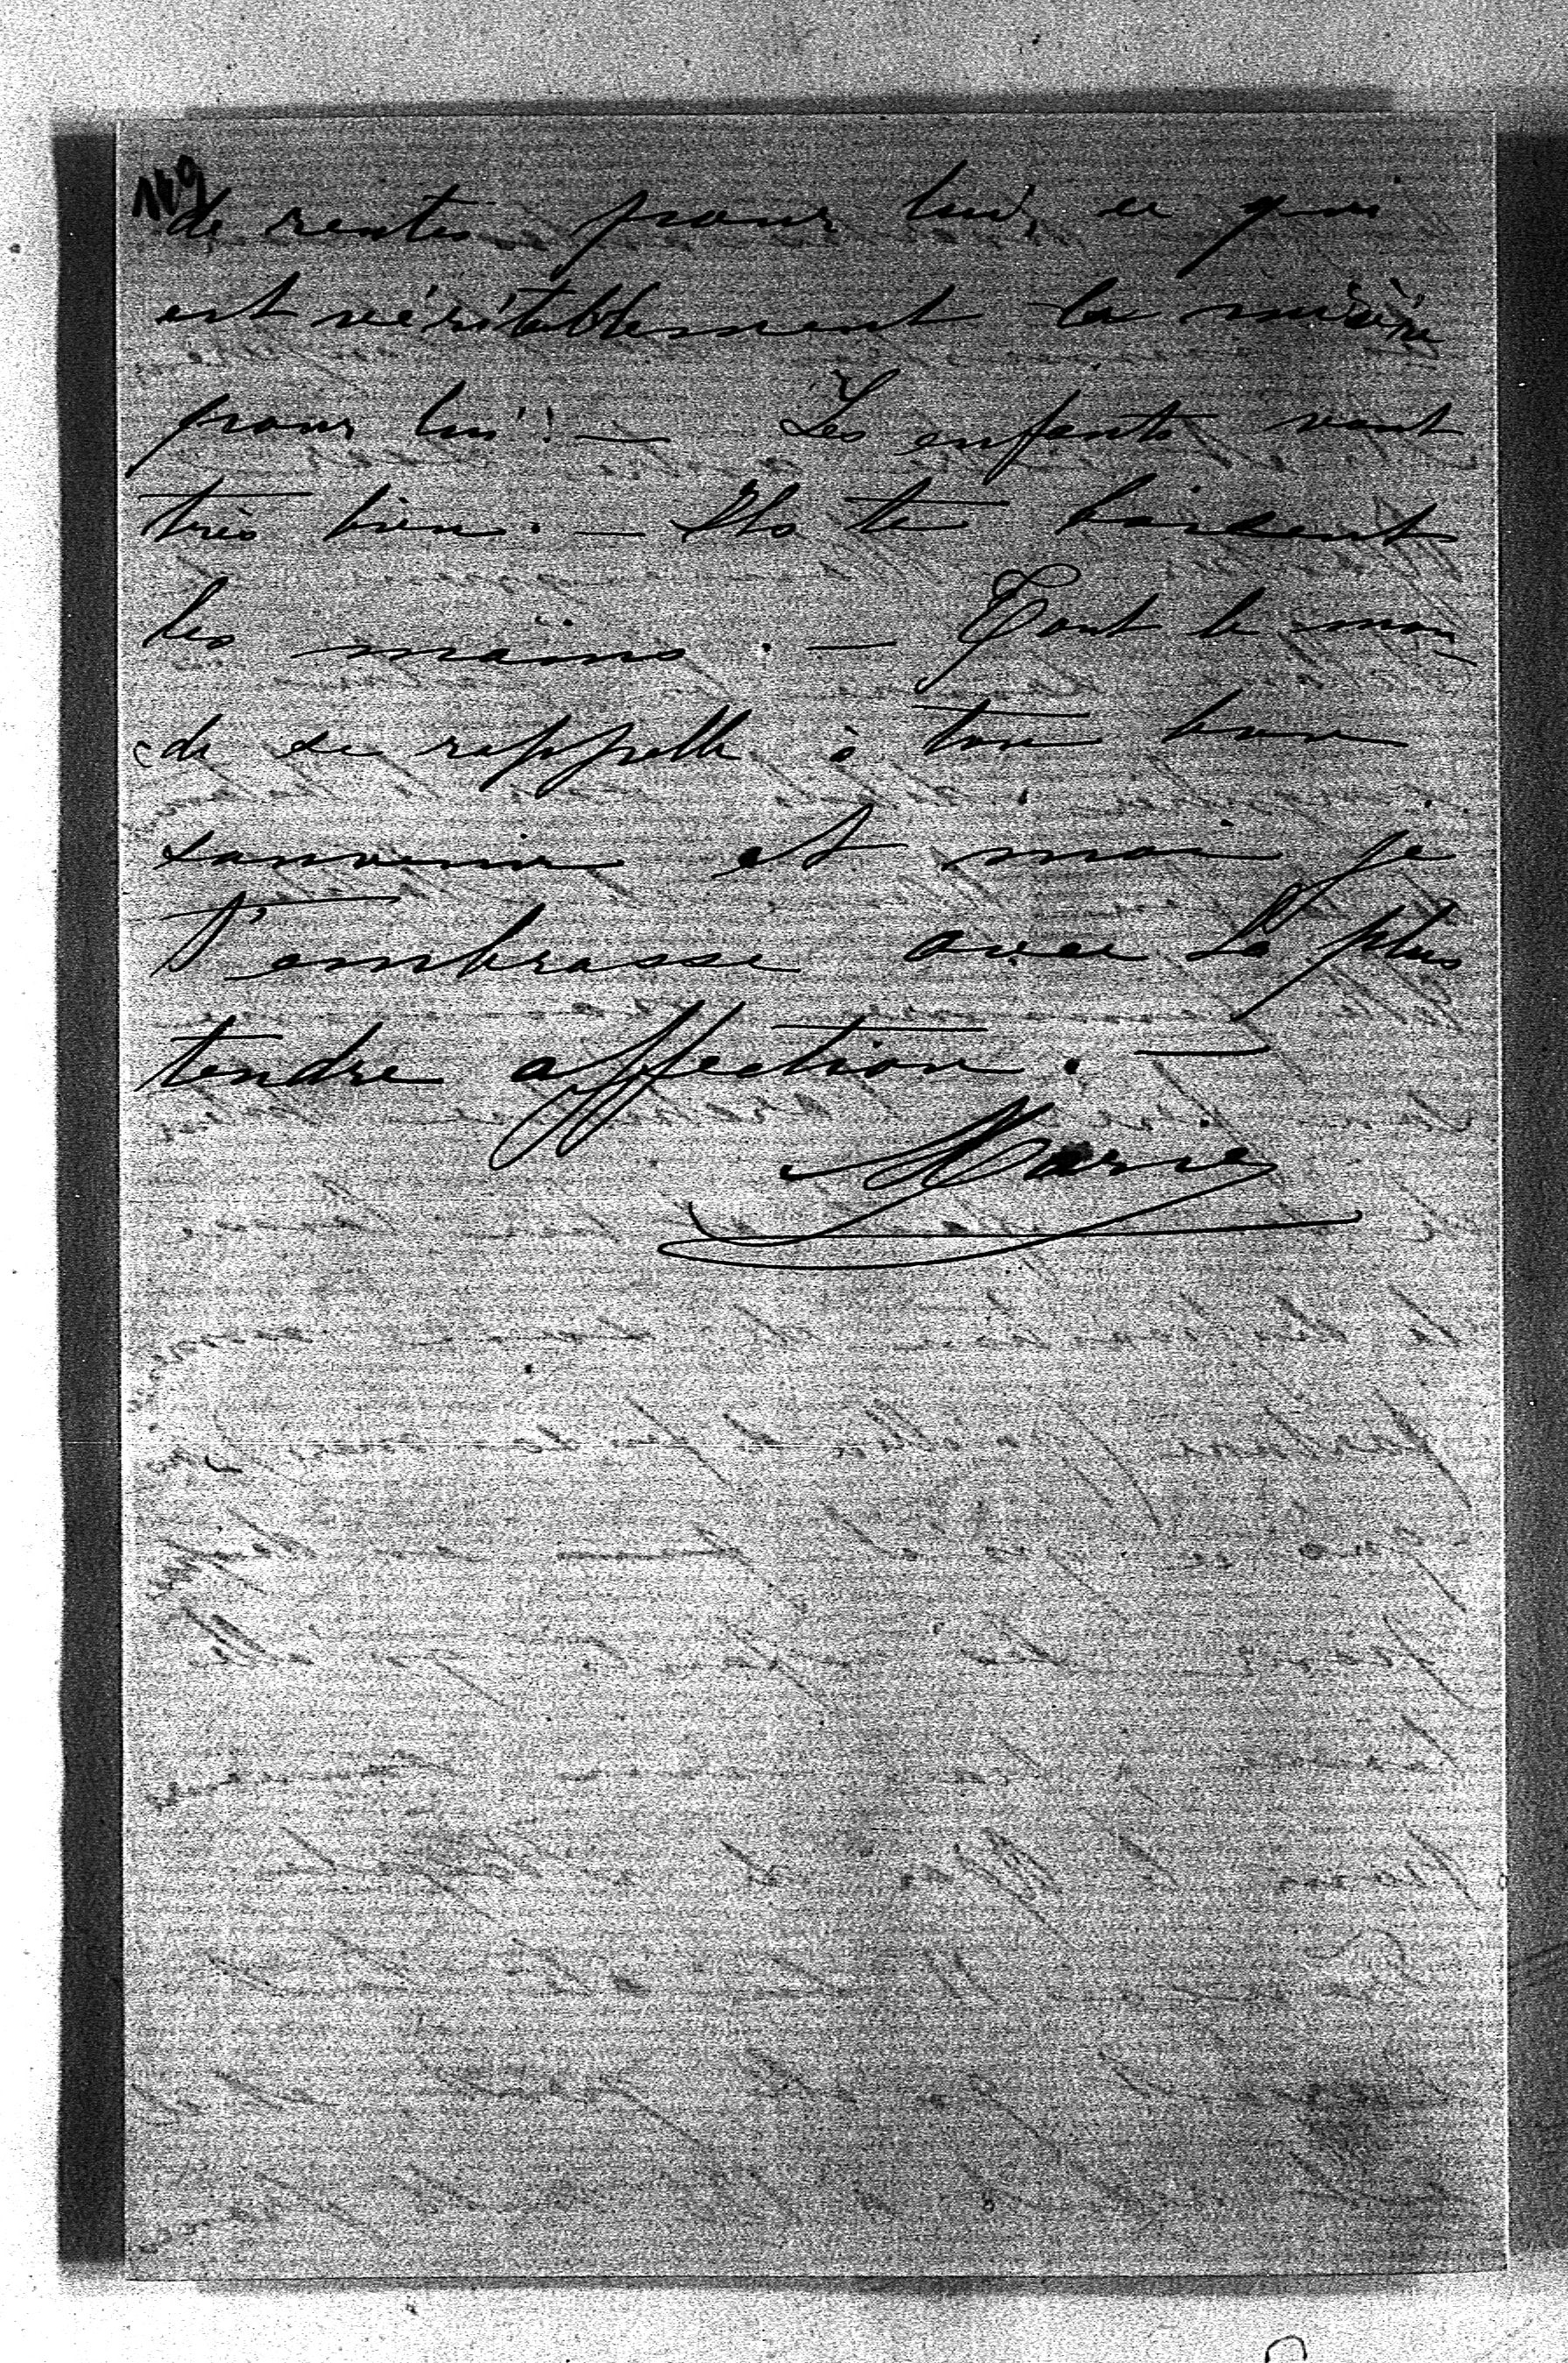 149
de rentes pour lui, ce qui
est véritablement la misère
pour lui! — Les enfants vont
très bien. — Ils te baisent
les mains. — Tout le mon-
de se rappelle à ton bon
souvenir et moi je
t'embrasse avec la plus
tendre affection. —
Marie